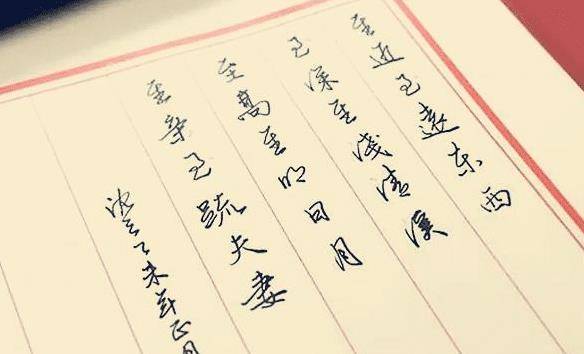 至近至遠东西
至深至淺清溪
至高至明日月
至亲至疏夫妻
年正月